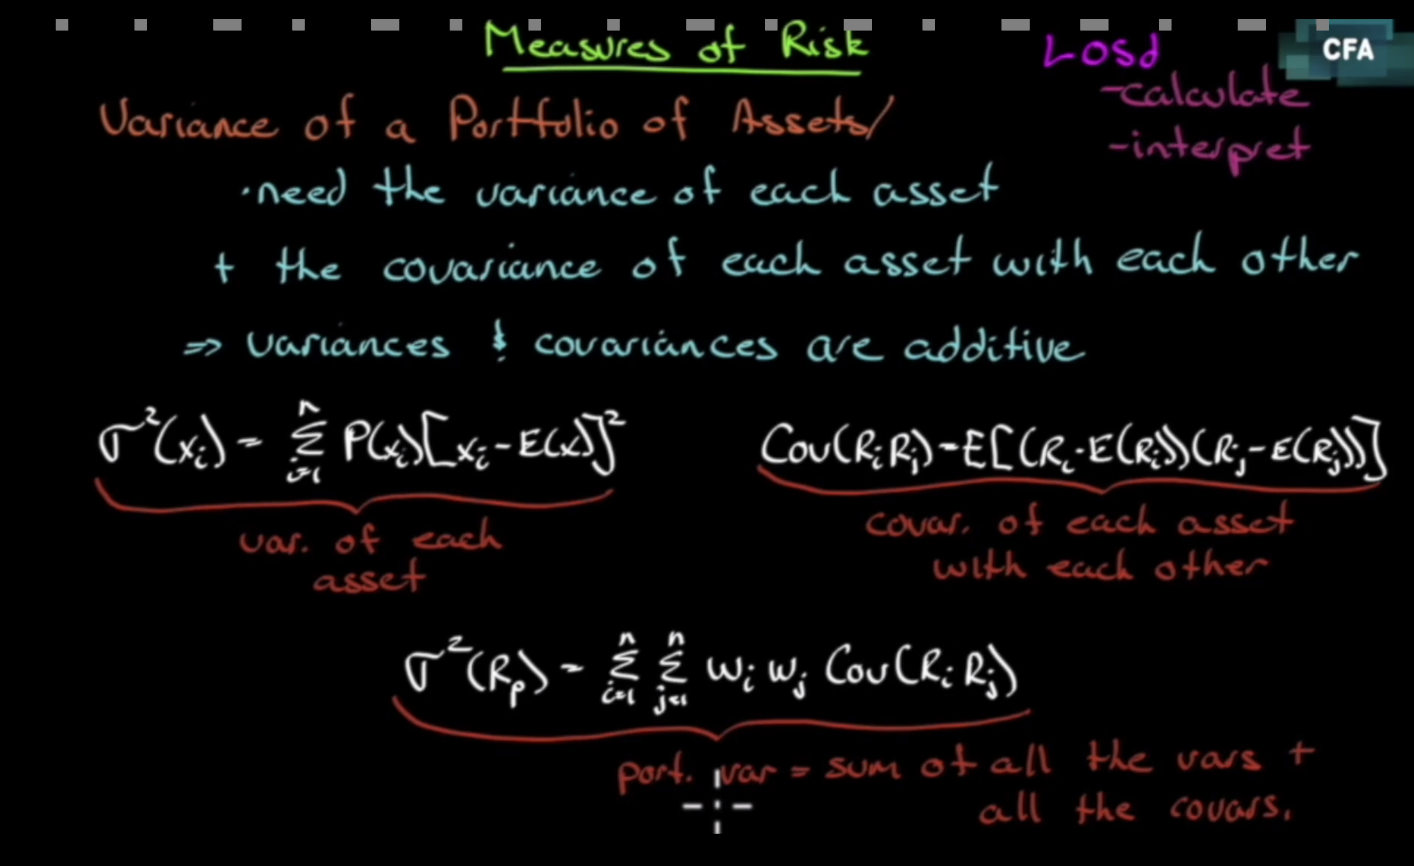 Measures of Risk
LOSd
CFA
-calculate
-interpret
Variance of a Portfolio of Assets/
·need the variance of each asset
+ the covariance of each asset with each other
⇒ variances & covariances are additive
σ²(xᵢ) = ⁿΣᵢ₌₁ P(xᵢ)[xᵢ - E(x)]²
Cov(RᵢRⱼ) = E[(Rᵢ - E(Rᵢ))(Rⱼ - E(Rⱼ))]
var. of each
asset
covar. of each asset
with each other
σ²(Rₚ) = ⁿΣᵢ₌₁ ⁿΣⱼ₌₁ wᵢ wⱼ Cov(Rᵢ Rⱼ)
port. var = sum of all the vars +
all the covars.